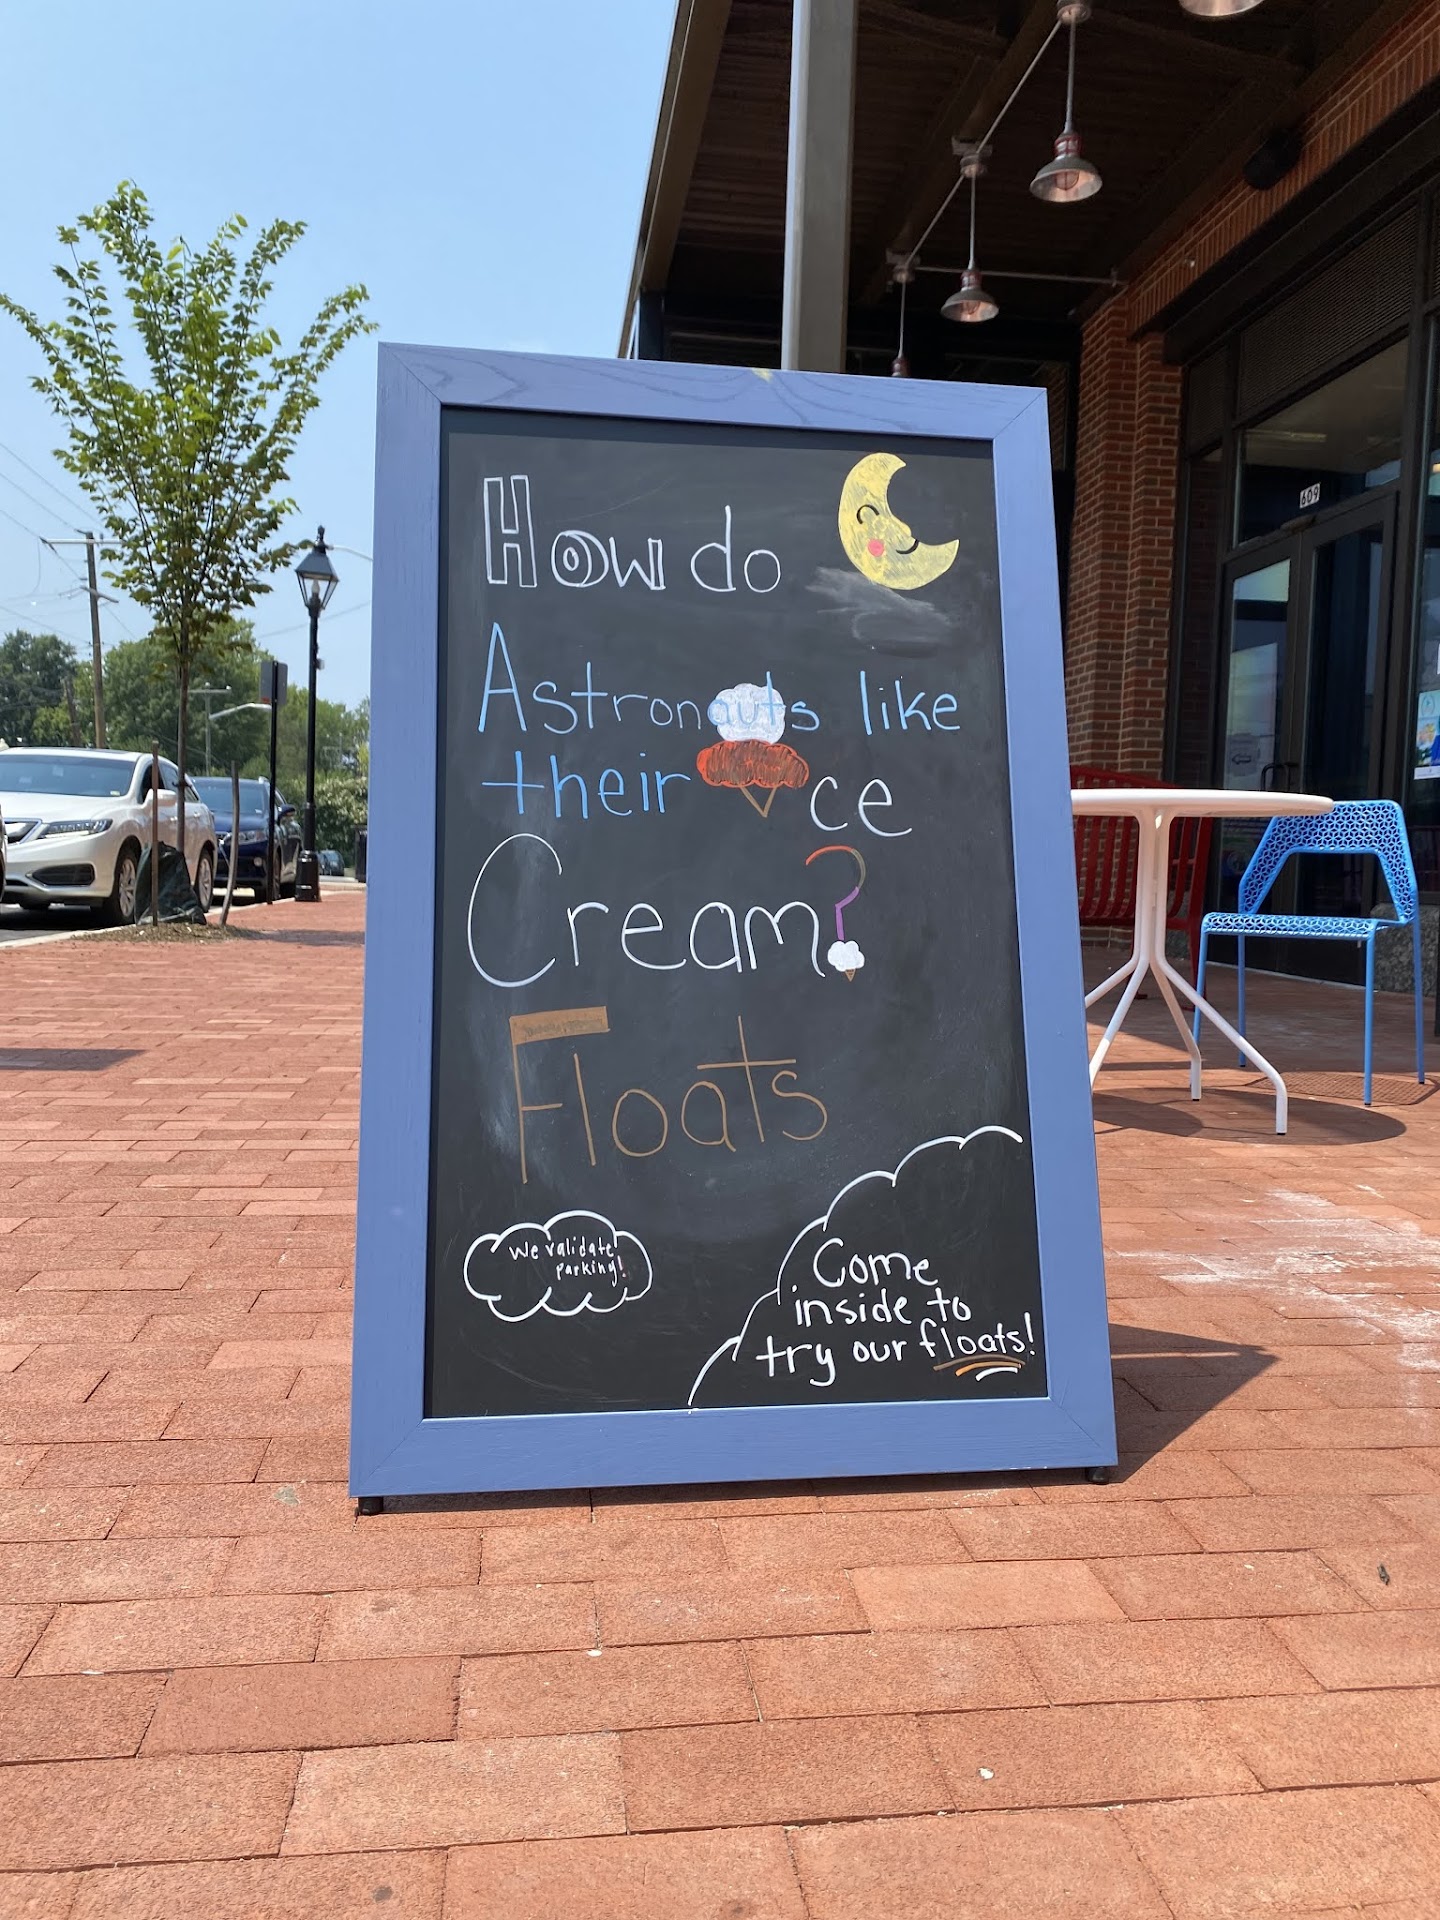 609
How do
Astronauts like
their Ice
Cream?
Floats
We validate
parking!
Come
inside to
try our floats!